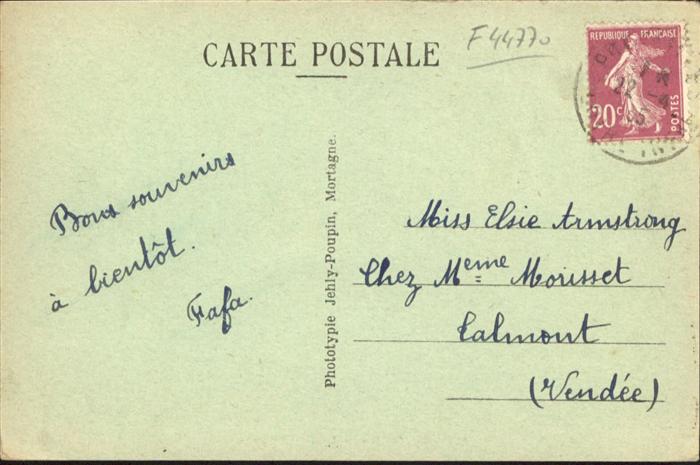 CARTE POSTALE
F 44770
REPUBLIQUE FRANÇAISE
20c
POSTES
Bons souvenirs
à bientôt.
Fafa.
Phototypie Jehly-Poupin, Mortagne.
Miss Elsie Armstrong
Chez Meme Morisset
Talmont
(Vendée)